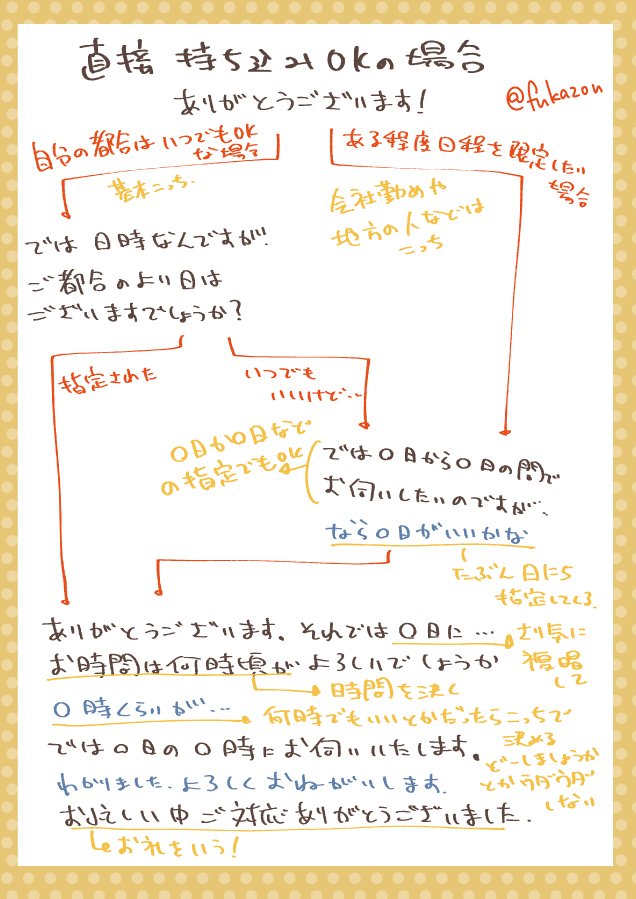 直接 持ち込みOKの場合
ありがとうございます!
@fukazon
自分の都合はいつでもOK
な場合
ある程度日程を限定したい
場合
基本こっち.
会社勤めや
地方の人などは
こっち
では 日時なんですが.
ご都合のよい日は
ございますでしょうか?
指定された
いつでも
いいけど…
〇日か〇日など
の指定でもOK
では〇日から〇日の間で
お伺いしたいのですが…
なら〇日がいいかな
たぶん 日にち
指定してくる.
ありがとうございます。それでは〇日に…
さり気に
復唱
して
お時間は何時頃が よろしいでしょうか
時間を決く
〇時くらいが…
何時でもいいとかだったらこっちで
決める
どーしましょうか
とかウダウダ
しない
では〇日の〇時にお伺いいたします。
わかりました.よろしくおねがいします.
お忙しい中ご対応ありがとうございました.
お礼をいう!